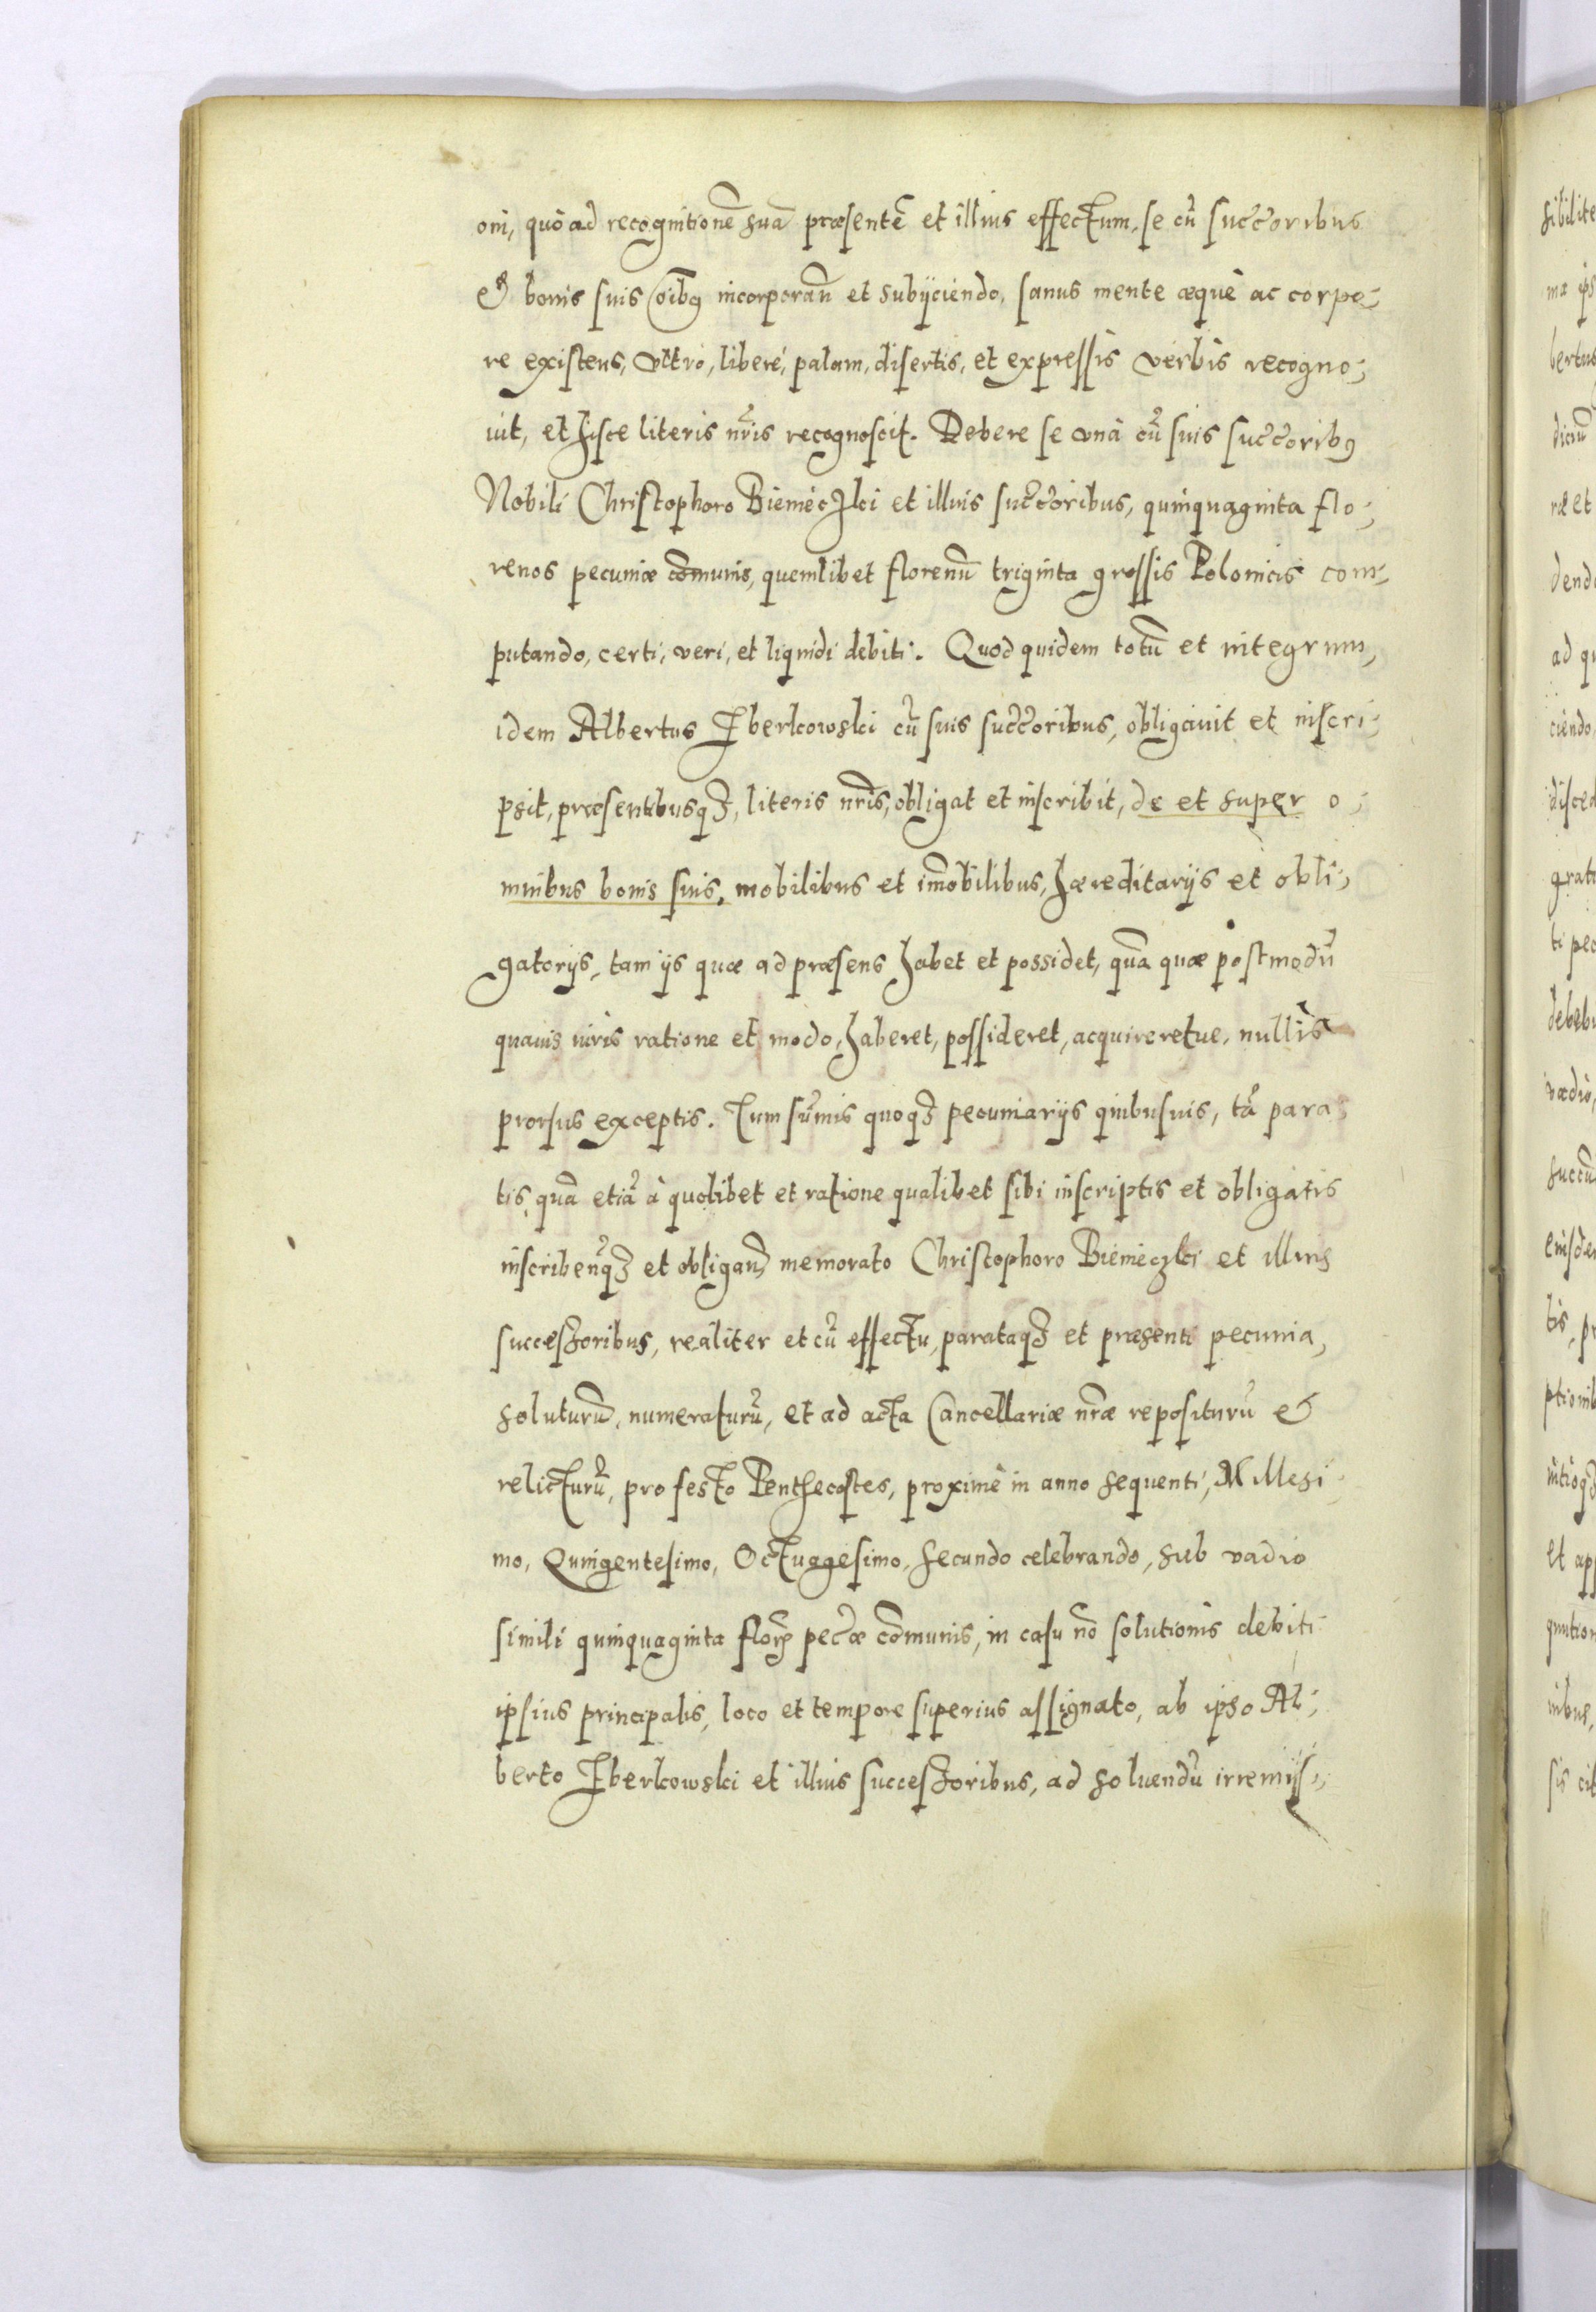 oni, quo ad recognitionē suā præsentē et illius effectum, se cū succ̄oribus
et bonis suis oībꝯ incorporan̄ et subijciendo, sanus mente æquè ac corpo-
re existens, vltrò, liberè, palam, disertis, et expressis verbis recogno-
uit, et hisce literis nr̄is recognoscit. Debere se vnà cū suis succ̄oribꝯ
Nobili Christophoro Bienieczki et illius succ̄oribus, quinquaginta flo-
renos pecuniæ com̄unis, quemlibet florenū triginta grossis Polonicis com-
putando, certi, veri, et liquidi debiti. Quod quidem totū et integrum,
idem Albertus Zberkowski cū suis succ̄oribus, obligauit et inscri-
psit, præsentibusqꝫ, literis nr̄is, obligat et inscribit, de et super o-
mnibus bonis suis, mobilibus et im̄obilibus, hæreditarijs et obli-
gatorijs, tam ijs quæ ad præsens habet et possidet, quā quæ postmodū
quauis iuris ratione et modo, haberet, possideret, acquireretue, nullis
prorsus exceptis. Tum sum̄is quoqꝫ pecuniarijs quibusuis, tā para-
tis, quā etiā à quolibet et ratione qualibet sibi inscriptis et obligatis
inscriben̄qꝫ et obligan̄ memorato Christophoro Bienieczki et illius
successoribus, realiter et cū effectu, parataqꝫ et præsenti pecunia,
soluturū, numeraturū, et ad acta Cancellariæ nr̄æ repositurū et
relicturū, pro festo Penthecostes, proximè in anno sequenti, Millesi-
mo, Quingentesimo, Octuagesimo, Secundo celebrando, sub vadio
simili quinquaginta florꝫ pec̄æ com̄unis, in casu nō solutionis debiti
ipsius principalis, loco et tempore superius assignato, ab ipso Al-
berto Zberkowski et illius successoribus, ad soluendū irremis-